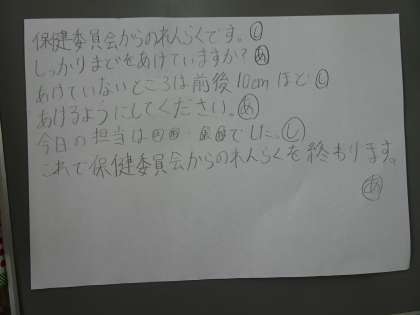 保健委員会からのれんらくです。し
しっかりまどをあけていますか?あ
あけていないところは前後10cmほど し
あけるようにしてください。あ
今日の担当は でした。し
これで保健委員会からのれんらくを終わります。
あ